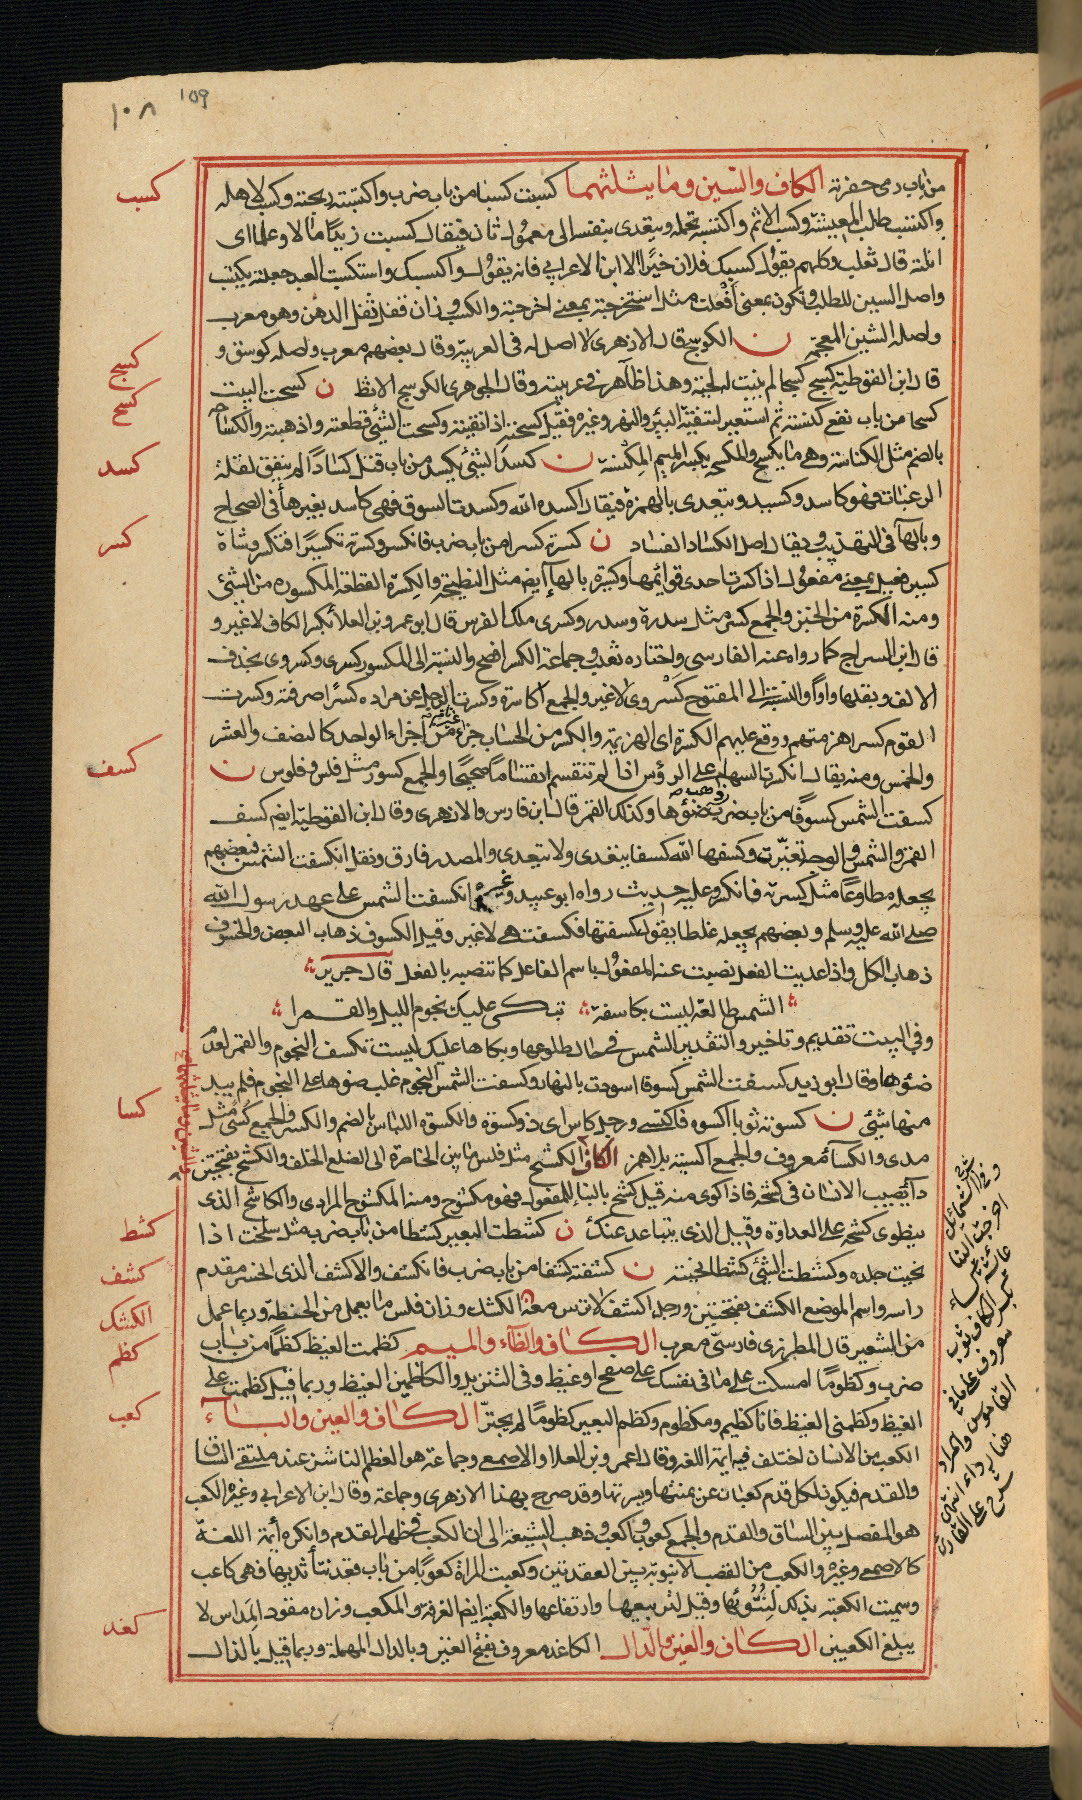 ١٠٨ ١٥٩
من باب رمى حفرته الكاف والسين وما يثلثهما كسبت كسبا من باب ضرب واكتسبته ربحته وكسب لاهله
واكتسب طلب المعيشة وكسب الاثم واكتسبه تحمله ويتعدى بنفسه الى مفعول ثان فيقال كسبت زيدًا مالا وعلما اى
انلته قال ثعلب وكلهم يقول كسبك فلان خيرًا الا ابن الاعرابي فانه يقول اكسبك واستكسبت العبد جعلته يكتسب
واصل السين للطلب وتكون بمعنى أفْعَلت مثل استخرجته بمعنى اخرجته والكسب وزان قفل ثفل الدهن وهو معرب
واصله الشين المعجمة ن الكوسج قال الازهرى لا اصل له فى العربية وقال بعضهم معرب واصله كوسق و
قال ابن القوطية كسج كسجا لم ينبت له لحية وهذا ظاهر فى عربيته وقال الجوهرى الكوسج الانط ن كسحت البيت
كسحا من باب نفع كنسته ثم استعير لتنقية البئر والنهر وغيره فقيل كسحته اذا نقيته وكسحت الشيء قطعته واذهبته والكساحة
بالضم مثل الكناسة وهى ما يكسح والمكسحة بكسر الميم المِكْنسة ن كسد الشيء يكسد من باب قتل كسادًا لم ينفق لقلة
الرغبات فهو كاسد وكسيد ويتعدى بالهمزة فيقال اكسده الله وكسدت السوق فهى كاسد بغير هاء فى الصحاح
وبالهاء فى التهذيب ويقال اصل الكساد الفساد ن كسرته كسرا من باب ضرب فانكسر وكسرته تكسيرًا فتكسر وشاة
كسير فعيل بمعنى مفعول اذا كسرت احدى قوائمها وكسيرة بالهاء ايضم مثل النطيحة والكِسْرة القطعة المكسوره من الشيء
ومنه الكسرة من الخبز والجمع كسر مثل سدرة وسدر وكسرى ملك الفرس قال ابو عمرو بن العلاء بكسر الكاف لا غير و
قال ابن السراج كما رواه عنه الفارسى واختاره ثعلب وجماعة الكسر افصح والنسبة الى المكسور كسرى وكسروى بحذف
الالف وبقلبها واوًا والنسبة الى المفتوح كَسْروى لا غير والجمع اكاسرة وكسرت الرجل عن مراده كسرًا صرفته وكسرت
القوم كسرا هزمتهم ووقع عليهم الكسرة اى الهزيمة والكسر من الحساب جزء غير تام من اجزاء الواحد كالنصف والعشر
والخمس ومنه يقال انكسرت السهام على الرؤس اذا لم تنقسم انقسامًا صحيحًا والجمع كسور مثل فلس وفلوس ن
كسفت الشمس كسوفًا من باب ضرب ذهب ضوؤها وكذلك القمر قاله ابن فارس والازهرى وقال ابن القوطية ايضم كسف
القمر والشمس والوجه تغيرت وكسفها الله كسفا يتعدى ولا يتعدى والمصدر فارق ونقل انكسفت الشمس فبعضهم
يجعله مطاوعًا مثل كسرته فانكسر وعليه حديث رواه ابو عبيد وغيره انكسفت الشمس على عهد رسول الله
صلى الله عليه وسلم وبعضهم يجعله غلطا يقول كسفتها فكسفت هى لا غير وقيل الكسوف ذهاب البعض والخسوف
ذهاب الكل واذا عديت الفعل نصبت عنه المفعول باسم الفاعل كما تنصبه بالفعل قال جرير
الشمس طالعة ليست بكاسفة تبكى عليك نجوم الليل والقمرا
وفى البيت تقديم وتاخير والتقدير الشمس فى حال طلوعها وبكاها عليك ليست تكسف النجوم والقمر لعدم
ضوئها وقال ابو زيد كسفت الشمس كسوفا اسودت بالنهار وكسفت الشمس النجوم غلب ضوها على النجوم فلم يبد
منها شيئ ن كسوته ثوبا اكسوه فاكتسى ورجل كاس اى ذو كسوة والكسوة اللباس بالضم والكسر والجمع كسًى مثل
مدى والكساء معروف والجمع اكسية بلا همز الكاف الكشح مثل فلس ما بين الخاصرة الى الضلع الخلف والكشح بفتحتين
دآء يصيب الانسان فى كشحه فاذا كوى منه قيل كشح بالبناء للمفعول فهو مكشوح ومنه المكشوح المرادى والكاشح الذى
يطوى كشحه على العداوة وقيل الذى يتباعد عنك ن كشطت البعير كشطا من باب ضرب مثل سلخت اذا
نحيت جلده وكشطت الشيء كشطا نحيته ن كشفته كشفا من باب ضرب فانكشف والاكشف الذى انحسر مقدم
راسه واسم الموضع الكشف بفتحتين ورجل اكشف لا ترس معه ن الكشك وزان فلس ما يعمل من الحنطة وربما عمل
من الشعير قال المطرزى فارسى معرب الكاف والظاء والميم كظمت الغيظ كظمًا من باب
ضرب وكظومًا امسكت على ما فى نفسك على صفح او غيظ وفى التنزيل والكاظمين الغيظ وربما قيل كظمت على
الغيظ وكظمنى الغيظ فانا كظيم ومكظوم وكظم البعير كظومًا لم يجترّ الكاف والعين والباء
الكعب من الانسان اختلف فيه ايمة اللغة وقال ابو عمرو بن العلاء والاصمعى وجماعة هو العظم الناشز عند ملتقى الساق
والقدم فيكون لكل قدم كعبان عن يمنتها ويسرتها وقد صرح بهذا الازهرى وجماعة وقال ابن الاعرابي وغيره الكعب
هو المفصل بين الساق والقدم والجمع كعوب واكعب وذهب الشيعة الى ان الكعب فى ظهر القدم وانكره أيمة اللغة
كالاصمعى وغيره والكعب من القصب الانبوبة بين العقدتين وكعبت المراة كعوبًا من باب قعد نتأ ثديها فهى كاعب
وسميت الكعبة بذلك لِنُتُوئها وقيل لتربيعها وارتفاعها والكعبة ايضم الغرفة والمكعب وزان مقود المَداس لا
يبلغ الكعبين الكاف والغين والدال الكاغد معروف بفتح الغين وبالدال المهملة وربما قيل بالذال
كسب
كسج
كسح
كسد
كسر
كسف
كسا
كشط
كشف
الكشك
كظم
كعب
كغد
وفى شرح الشمائل
اخرجت الينا
عائشة كساء
بكسر الكاف ثوب
معروف على ما فى
القاموس والمراد
هنا رداء انتهى
شرح على القارى